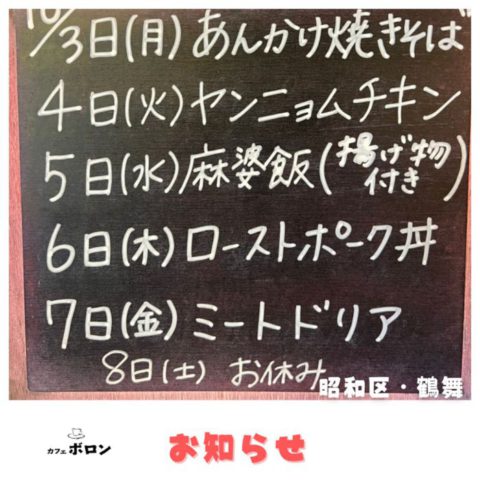 10/3日(月)あんかけ焼きそば
4日(火)ヤンニョムチキン
5日(水)麻婆飯(揚げ物付き)
6日(木)ローストポーク丼
7日(金)ミートドリア
8日(土) お休み
昭和区・鶴舞
カフェ ボロン
お知らせ